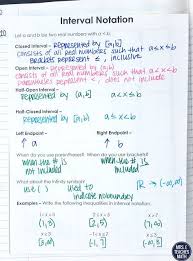 Interval Notation
Let a and b be two real numbers with a < b.
Closed Interval - represented by [a,b]
consists of all real numbers such that a≤x≤b
brackets represent ≤, inclusive
Open Interval - represented by (a,b)
consists of all real numbers such that a<x<b
parentheses represent <, does not include
Half-Open Interval -
represented by (a,b] a<x≤b
Half-Closed Interval -
represented by [a,b) a≤x<b
Left Endpoint - Right Endpoint -
a b
When do you use parentheses? When do you use brackets?
when the # is not included
when the # is included
What does the infinity symbol
use ( ) used to indicate no boundary
ℝ → (-∞,∞)
Examples - Write the following inequalities in interval notation.
MATH